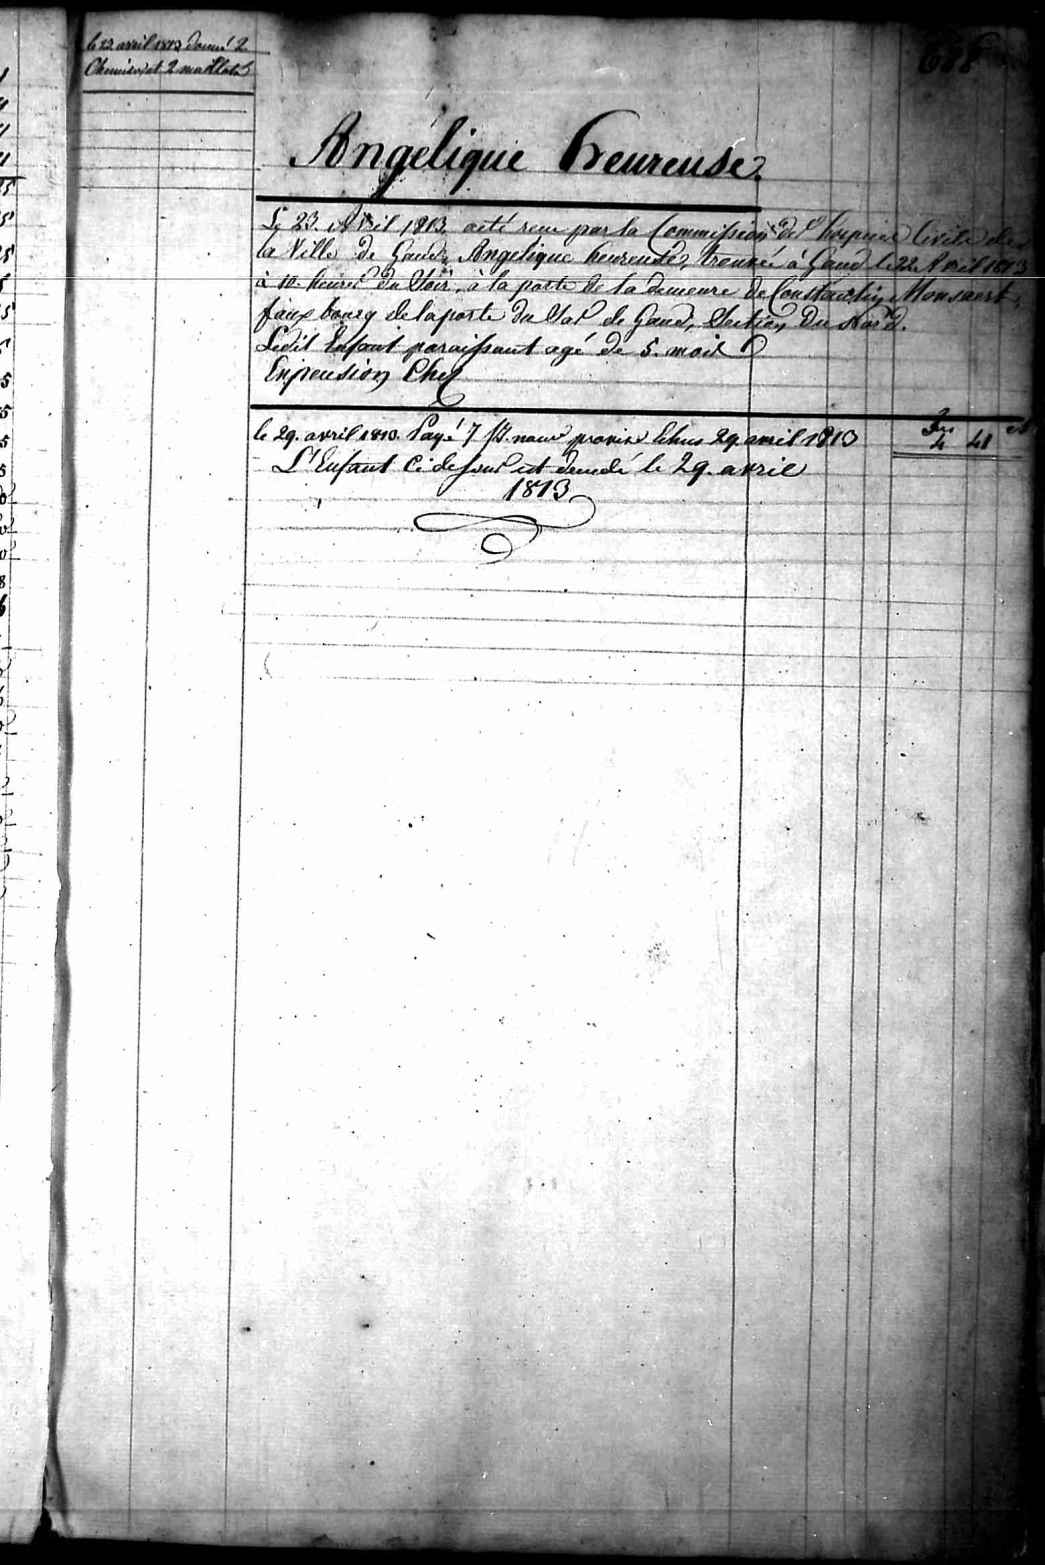 le 23 avril 1813 donné 2
Chemises et 2 maillots
688
Angélique heureuse.
Le 23. Avril 1813. a eté recu par la Commission de l'hospice Civile de
la Ville de Gand, Angelique heureuse, trouvée à Gand le 22 Avril 1813
à 10. heures du Soir, à la porte de la demeure de Constantin Monsaert,
faux bourg de la porte du Sas de Gand, Section Du Nord.
Ledit Enfant paraissant agé de 5. mois
En pension Chez
le 29. avril 1813. Payé 7 pour echus 29 avril 1813
4 48
L'Enfant Ci dessus est decedé le 29. avril
1813